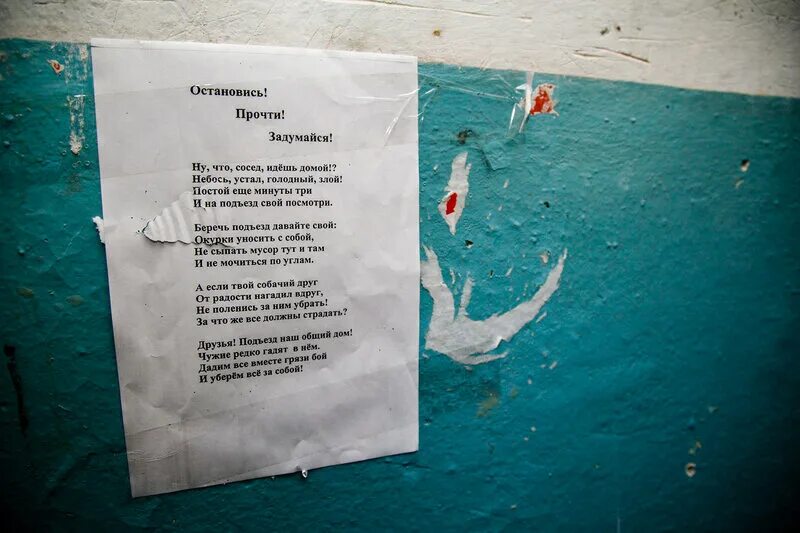 Остановись!
Прочти!
Задумайся!
Ну, что, сосед, идёшь домой!?
Небось, устал, голодный, злой!
Постой еще минуты три
И на подъезд свой посмотри.
Беречь подъезд давайте свой:
Окурки уносить с собой,
Не сыпать мусор тут и там
И не мочиться по углам.
А если твой собачий друг
От радости нагадил вдруг,
Не поленись за ним убрать!
За что же все должны страдать?
Друзья! Подъезд наш общий дом!
Чужие редко гадят в нём.
Дадим все вместе грязи бой
И уберём всё за собой!